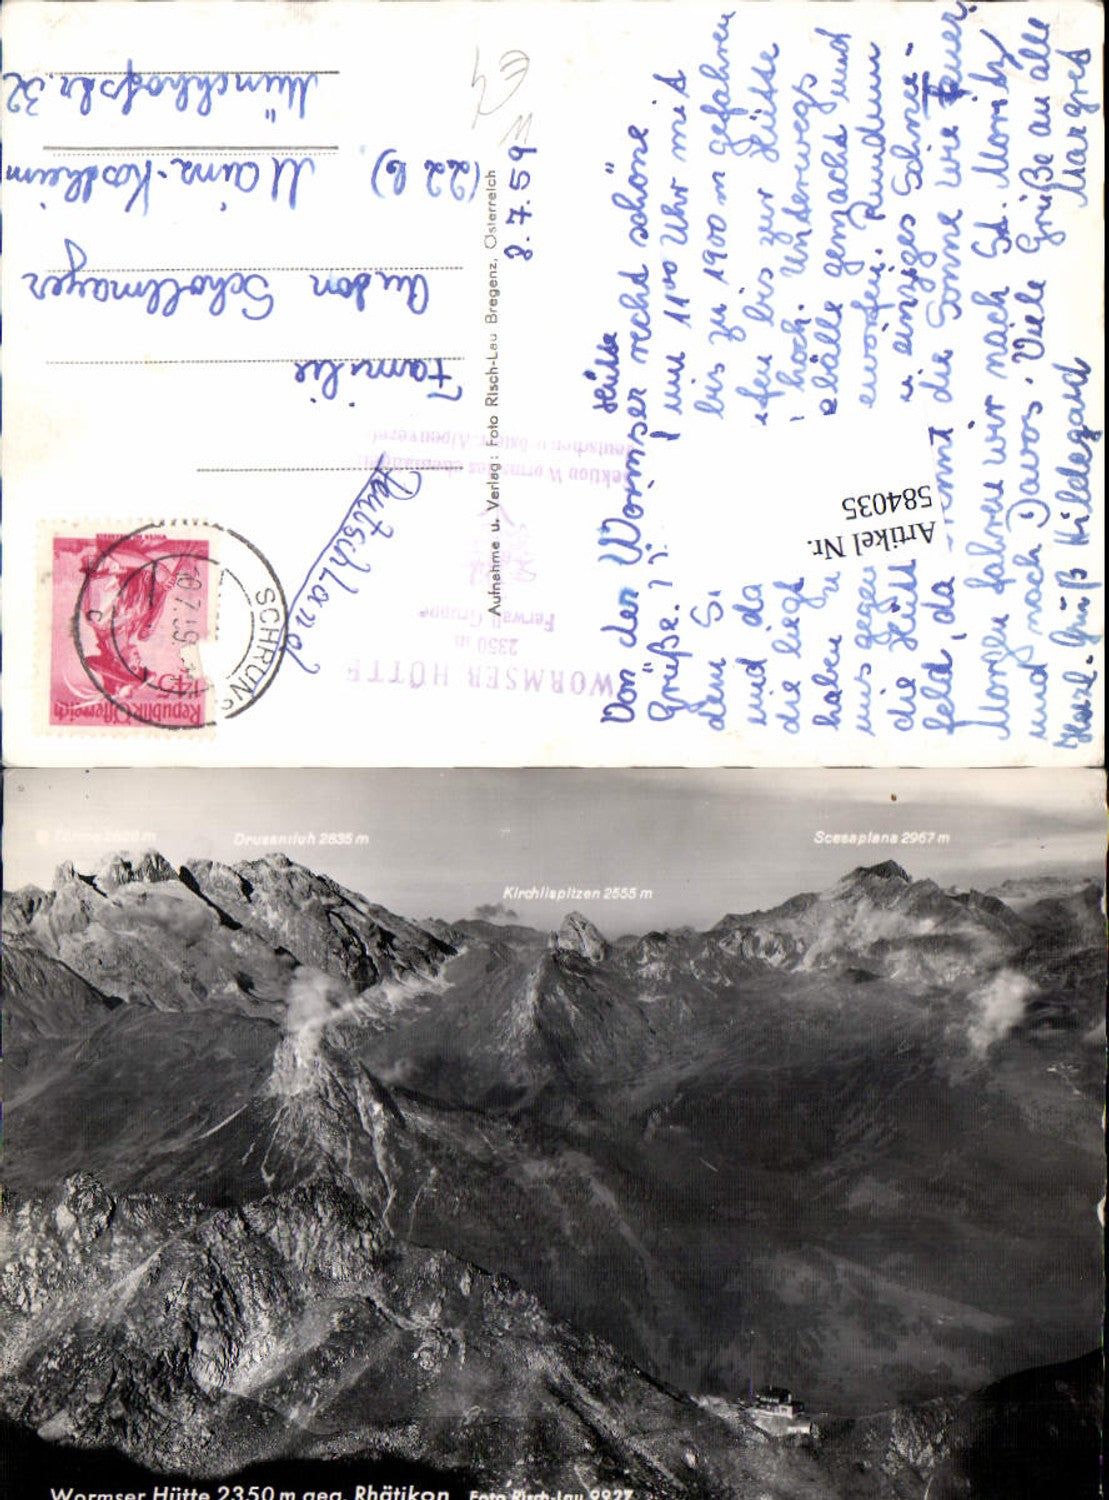 8.7.59
Von der Wormser Hütte
recht schöne
Grüße.
um 11⁰⁰ Uhr mit
dem
bis zu 1900 m gefahren
und da
bis zur Hütte
die liegt
hoch. Unterwegs
haben
bälle gemacht und
uns gegen
Rundum
die Hütte
einziges Schnee-
feld, da
die Sonne wie Feuer.
Morgen fahren wir nach St. Moritz
und nach Davos. Viele Grüße an alle
Herzl. Gruß Hildegard
Margret
Familie
Anton Schollmayer
(22 b)
Mainz-Kostheim
Münchhofstr. 32
Deutschland
WORMSER HÜTTE
2350 m
Ferwall Gruppe
Sektion Worms des
Deutschen u. Österr. Alpenverei
Republik Österreich
SCHRUNS
c
Aufnahme u. Verlag: Foto Risch-Lau Bregenz, Österreich
Artikel Nr.
584035
Drusenfluh 2835 m
Kirchlispitzen 2555 m
Scesaplana 2967 m
Wormser Hütte 2350 m geg. Rhätikon Foto Risch-Lau 9927